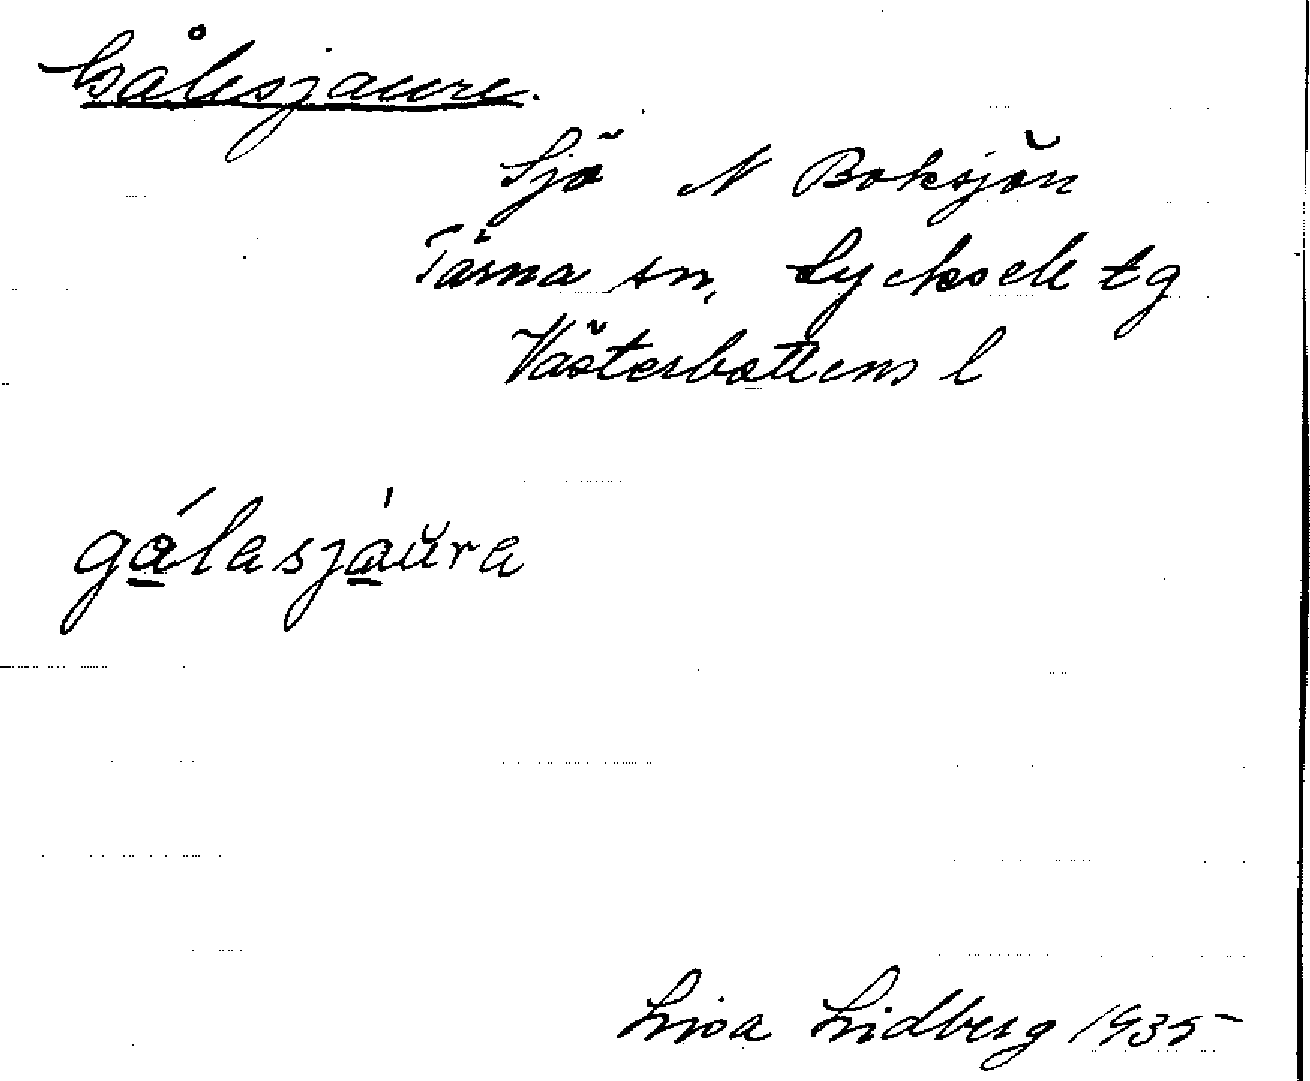 Gålesjaure.
Sjö N Boksjön
Tärna sn, Lycksele tg
Västerbottens l
gá̱lasjá̱ŭra
Lisa Lidberg 1935